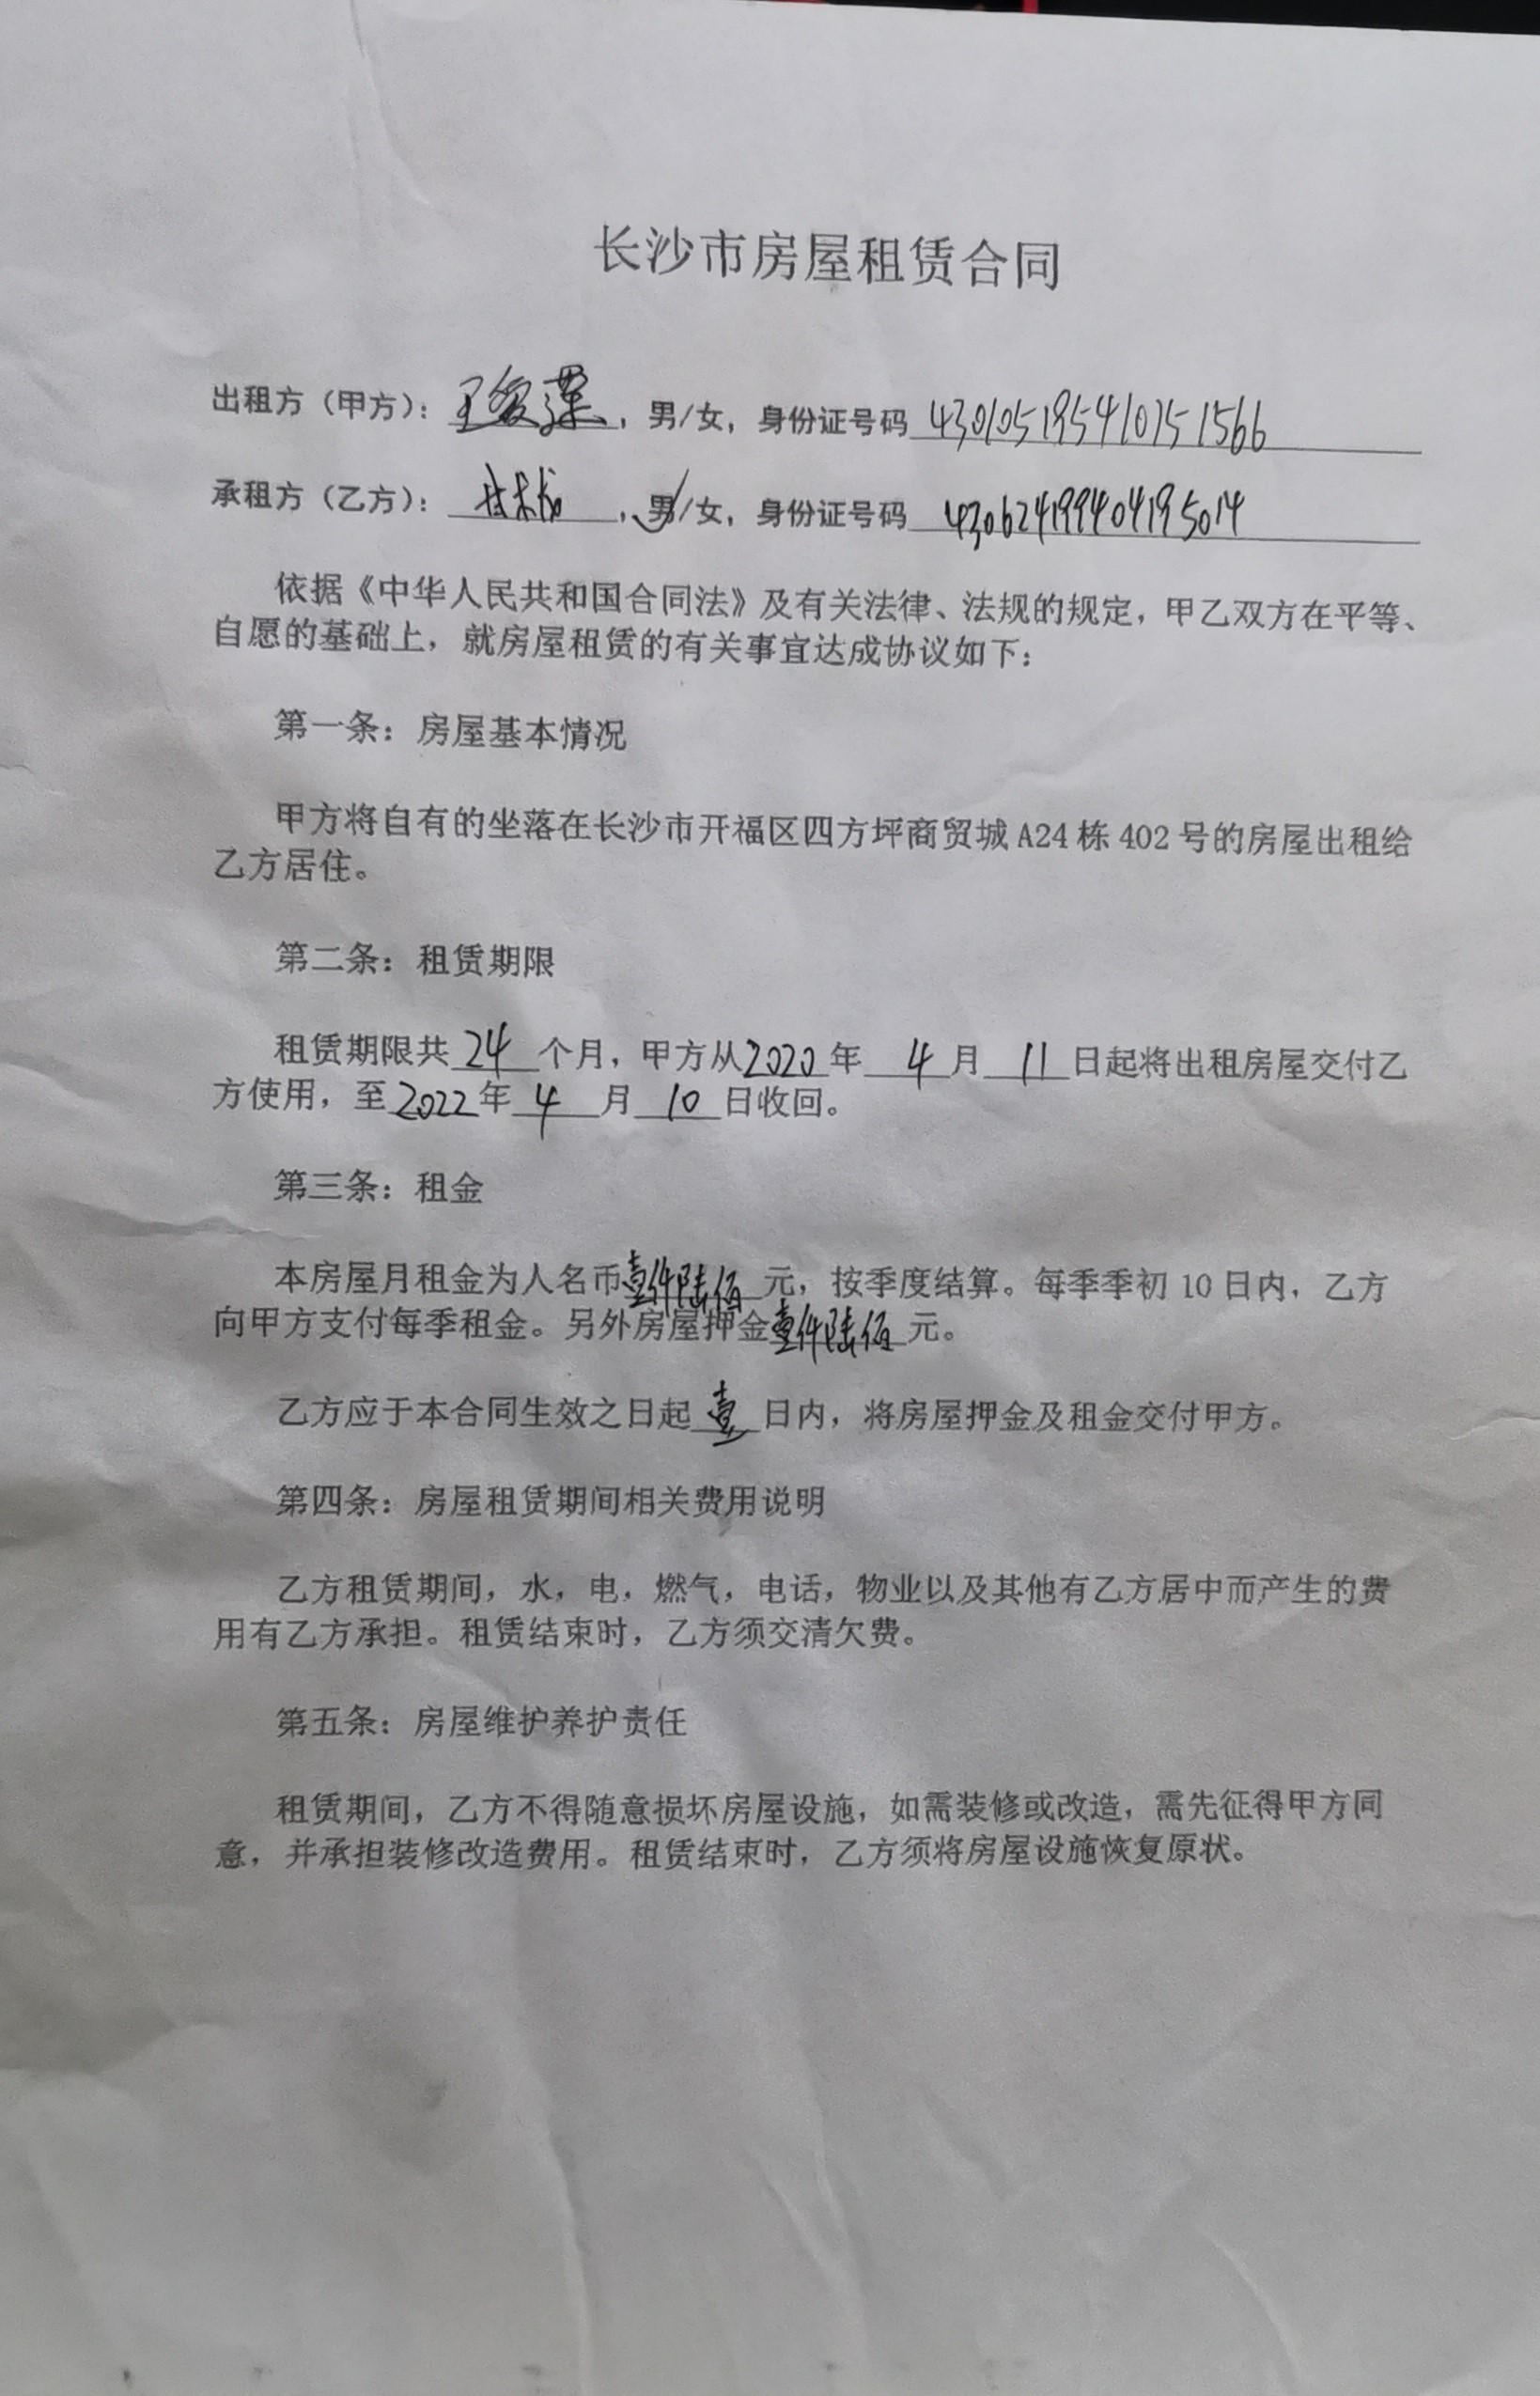 长沙市房屋租赁合同
出租方（甲方）：王爱莲，男/女，身份证号码 430105195410151566
承租方（乙方）：，男/女，身份证号码 430624199404195014
依据《中华人民共和国合同法》及有关法律、法规的规定，甲乙双方在平等、
自愿的基础上，就房屋租赁的有关事宜达成协议如下：
第一条：房屋基本情况
甲方将自有的坐落在长沙市开福区四方坪商贸城 A24 栋 402 号的房屋出租给
乙方居住。
第二条：租赁期限
租赁期限共 24 个月，甲方从2020年 4 月 11 日起将出租房屋交付乙
方使用，至2022年 4 月 10 日收回。
第三条：租金
本房屋月租金为人名币壹仟陆佰元，按季度结算。每季季初 10 日内，乙方
向甲方支付每季租金。另外房屋押金壹仟陆佰元。
乙方应于本合同生效之日起壹日内，将房屋押金及租金交付甲方。
第四条：房屋租赁期间相关费用说明
乙方租赁期间，水，电，燃气，电话，物业以及其他有乙方居中而产生的费
用有乙方承担。租赁结束时，乙方须交清欠费。
第五条：房屋维护养护责任
租赁期间，乙方不得随意损坏房屋设施，如需装修或改造，需先征得甲方同
意，并承担装修改造费用。租赁结束时，乙方须将房屋设施恢复原状。